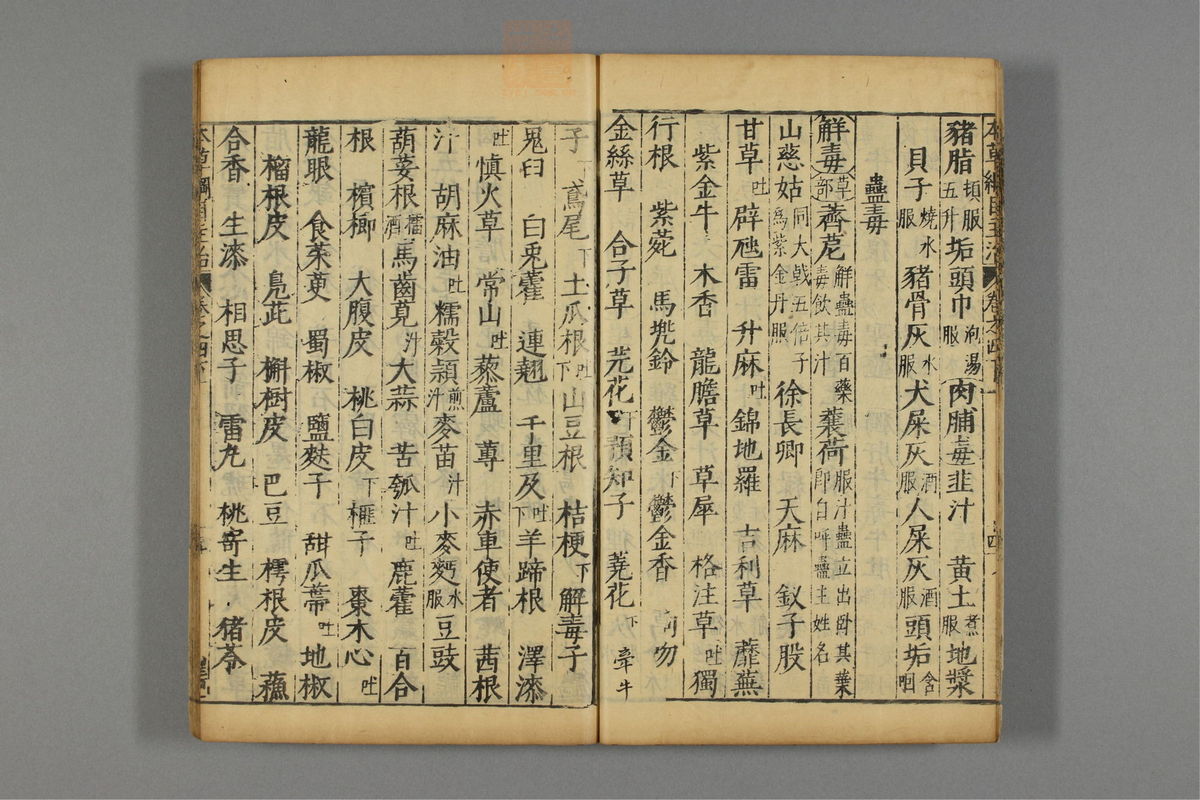 豬脂頓服五升垢頭巾泡湯服肉脯毒韭汁　黃土煮服地漿
貝子燒水服　豬骨灰水服犬屎灰酒服人屎灰酒服頭垢含咽
蠱毒
解毒草部薺苨解蠱毒百藥毒飲其汁蘘荷服汁蠱立出臥其葉即自呼蠱主姓名
山慈姑同大戟五倍子為紫金丹服　徐長卿　天麻　釵子股
甘草吐　辟虺雷　升麻吐　錦地羅　吉利草　蘼蕪
紫金牛　木香　龍膽草　草犀　格注草吐　獨
行根　紫菀　馬兜鈴　鬱金下　鬱金香　鉤吻
金絲草　合子草　芫花下　預知子　蕘花下　牽牛
子下　鳶尾下　土瓜根吐下　山豆根　桔梗下　解毒子
鬼臼　白兎藿　連翹　千里及吐下　羊蹄根　澤漆
吐　慎火草　常山吐　藜蘆　蓴　赤車使者　茜根
汁　胡麻油吐　糯穀頴煎汁　麥苗汁　小麥麪水服　豆豉
葫荽根擂酒　馬齒莧汁　大蒜　苦瓠汁吐　鹿藿　百合
根　檳榔　大腹皮　桃白皮下　榧子　棗木心吐
龍眼　食茱萸　蜀椒　鹽麩子　甜瓜蒂吐　地椒
榴根皮　鳧茈　槲樹皮　巴豆　樗根皮　蘓
合香　生漆　相思子　雷丸　桃寄生　豬苓
本草綱目主治　卷之四